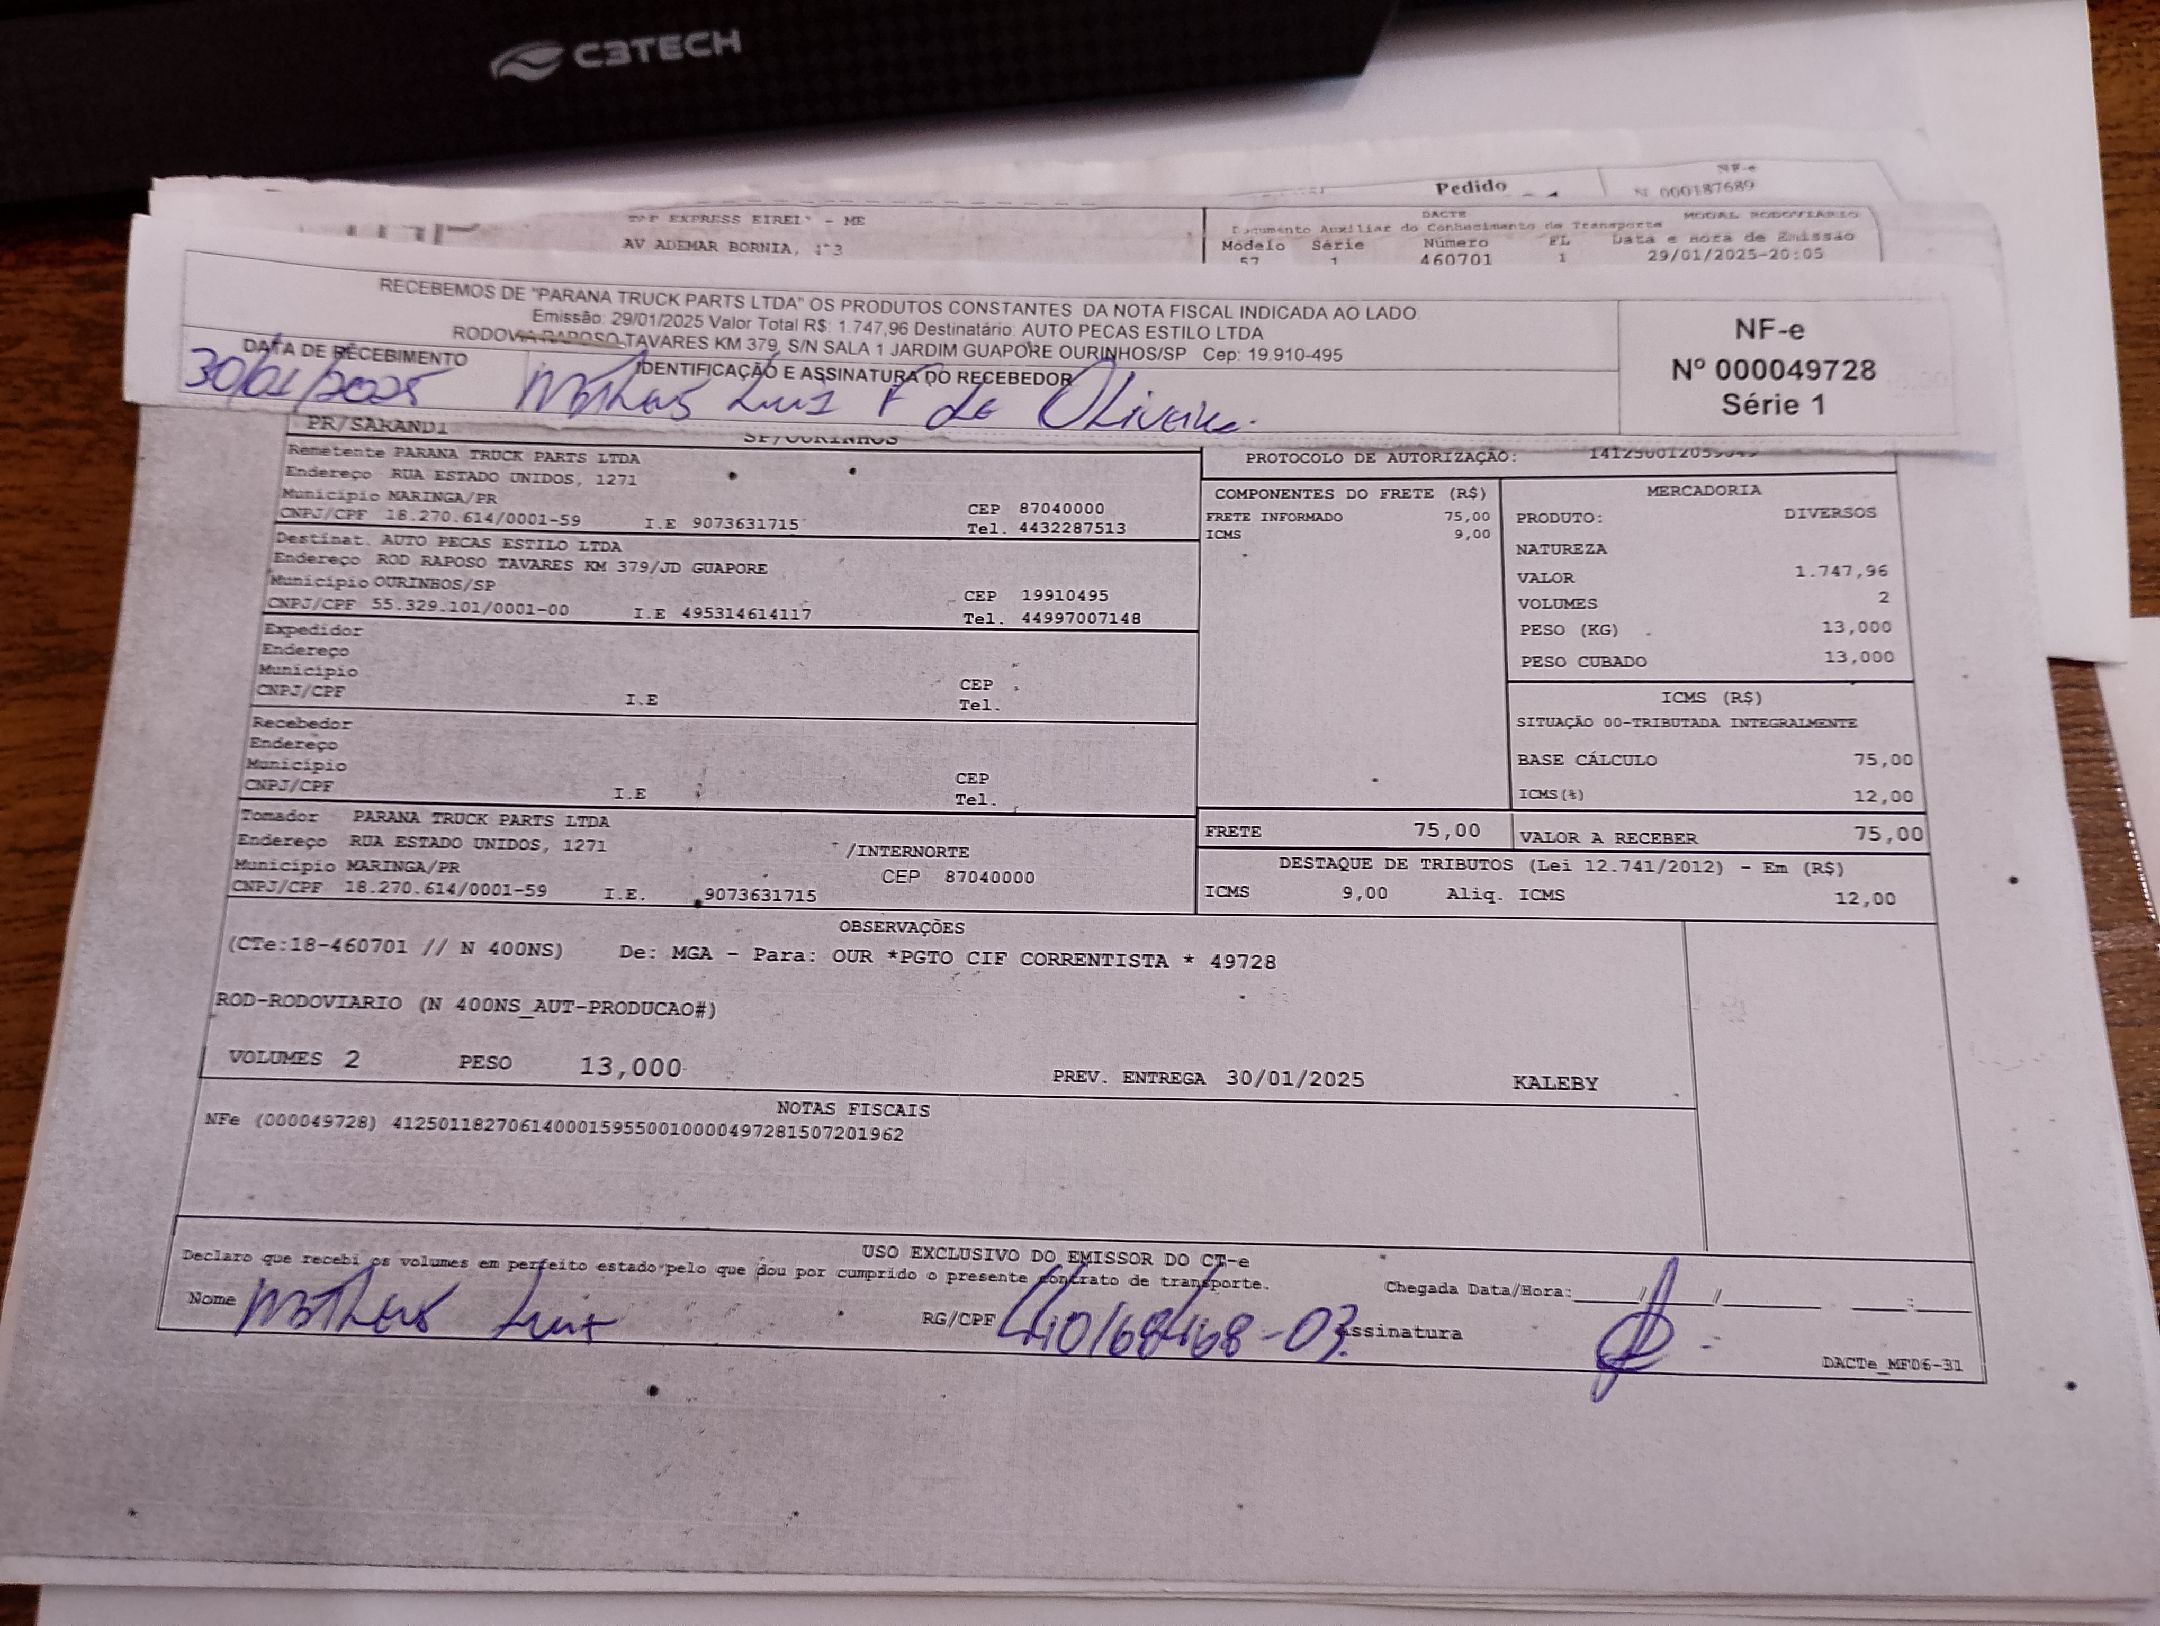 C3TECH
Pedido
NF-e
N 000187689
EXPRESS EIREL - ME
AV ADEMAR BORNIA,
DACTE MODAL RODOVIARIO
Documento Auxiliar do Conhecimento de Transporte
Modelo Série Número FL Data e Hora de Emissão
57 1 460701 1 29/01/2025-20:05
RECEBEMOS DE "PARANA TRUCK PARTS LTDA" OS PRODUTOS CONSTANTES DA NOTA FISCAL INDICADA AO LADO
Emissão: 29/01/2025 Valor Total R$: 1.747,96 Destinatário: AUTO PECAS ESTILO LTDA
RODOVIA RAPOSO TAVARES KM 379, S/N SALA 1 JARDIM GUAPORE OURINHOS/SP Cep: 19.910-495
DATA DE RECEBIMENTO IDENTIFICAÇÃO E ASSINATURA DO RECEBEDOR
30/01/2025 Matheus Luis F de Oliveira
NF-e
Nº 000049728
Série 1
PR/SARANDI SP/OURINHOS
Remetente PARANA TRUCK PARTS LTDA
Endereço RUA ESTADO UNIDOS, 1271
Município MARINGA/PR CEP 87040000
CNPJ/CPF 18.270.614/0001-59 I.E 9073631715 Tel. 4432287513
Destinat. AUTO PECAS ESTILO LTDA
Endereço ROD RAPOSO TAVARES KM 379/JD GUAPORE
Município OURINHOS/SP CEP 19910495
CNPJ/CPF 55.329.101/0001-00 I.E 495314614117 Tel. 44997007148
Expedidor
Endereço
Município CEP
CNPJ/CPF I.E Tel.
Recebedor
Endereço
Município CEP
CNPJ/CPF I.E Tel.
Tomador PARANA TRUCK PARTS LTDA
Endereço RUA ESTADO UNIDOS, 1271 /INTERNORTE
Município MARINGA/PR CEP 87040000
CNPJ/CPF 18.270.614/0001-59 I.E. 9073631715
PROTOCOLO DE AUTORIZAÇÃO:
COMPONENTES DO FRETE (R$)
FRETE INFORMADO 75,00
ICMS 9,00
MERCADORIA
PRODUTO: DIVERSOS
NATUREZA
VALOR 1.747,96
VOLUMES 2
PESO (KG) 13,000
PESO CUBADO 13,000
ICMS (R$)
SITUAÇÃO 00-TRIBUTADA INTEGRALMENTE
BASE CÁLCULO 75,00
ICMS(%) 12,00
FRETE 75,00 VALOR A RECEBER 75,00
DESTAQUE DE TRIBUTOS (Lei 12.741/2012) - Em (R$)
ICMS 9,00 Aliq. ICMS 12,00
OBSERVAÇÕES
(CTe:18-460701 // N 400NS) De: MGA - Para: OUR *PGTO CIF CORRENTISTA * 49728
ROD-RODOVIARIO (N 400NS_AUT-PRODUCAO#)
VOLUMES 2 PESO 13,000 PREV. ENTREGA 30/01/2025 KALEBY
NOTAS FISCAIS
NFe (000049728) 41250118270614000159550010000497281507201962
USO EXCLUSIVO DO EMISSOR DO CT-e
Declaro que recebi os volumes em perfeito estado pelo que dou por cumprido o presente contrato de transporte.
Chegada Data/Hora:____/____/____ ___:___
Nome Matheus Luis RG/CPF 440168468-03 Assinatura
DACTe_MF06-31